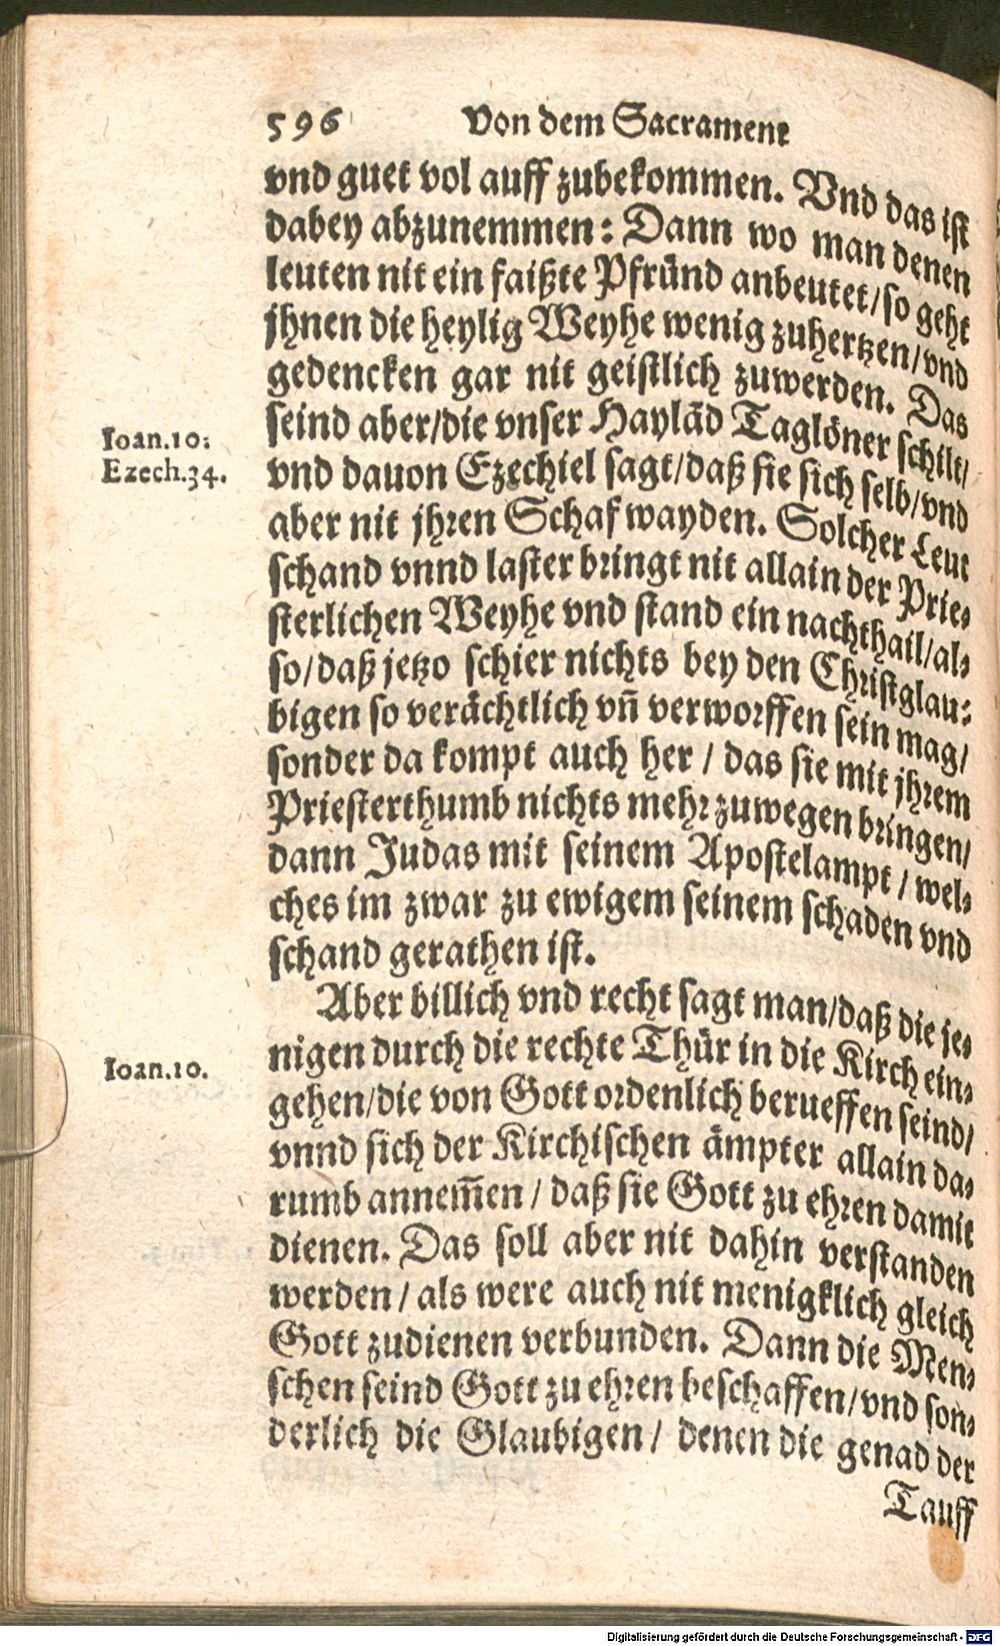 596 Von dem Sacrament
vnd guet vol auff zubekommen. Vnd das ist
dabey abzunemmen: Dann wo man denen
leuten nit ein faißte Pfründ anbeutet/so geht
jhnen die heylig Weyhe wenig zuhertzen/vnd
gedencken gar nit geistlich zuwerden. Das
seind aber/die vnser Haylād Taglöner schilt/
Ioan.10:
vnd dauon Ezechiel sagt/daß sie sich selb/vnd
Ezech.34.
aber nit jhren Schaf wayden. Solcher Leut
schand vnnd laster bringt nit allain der Prie⸗
sterlichen Weyhe vnd stand ein nachthail/al⸗
so/daß jetzo schier nichts bey den Christglau⸗
bigen so verächtlich vñ verworffen sein mag/
sonder da kompt auch her / das sie mit jhrem
Priesterthumb nichts mehr zuwegen bringen/
dann Judas mit seinem Apostelampt / wel⸗
ches im zwar zu ewigem seinem schaden vnd
schand gerathen ist.
Aber billich vnd recht sagt man/daß die je⸗
nigen durch die rechte Thür in die Kirch ein⸗
Ioan.10.
gehen/die von Gott ordenlich berueffen seind/
vnnd sich der Kirchischen ämpter allain da⸗
rumb annem̄en / daß sie Gott zu ehren damit
dienen. Das soll aber nit dahin verstanden
werden / als were auch nit menigklich gleich
Gott zudienen verbunden. Dann die Men⸗
schen seind Gott zu ehren beschaffen/vnd son⸗
derlich die Glaubigen / denen die genad der
Tauff
Digitalisierung gefördert durch die Deutsche Forschungsgemeinschaft - DFG